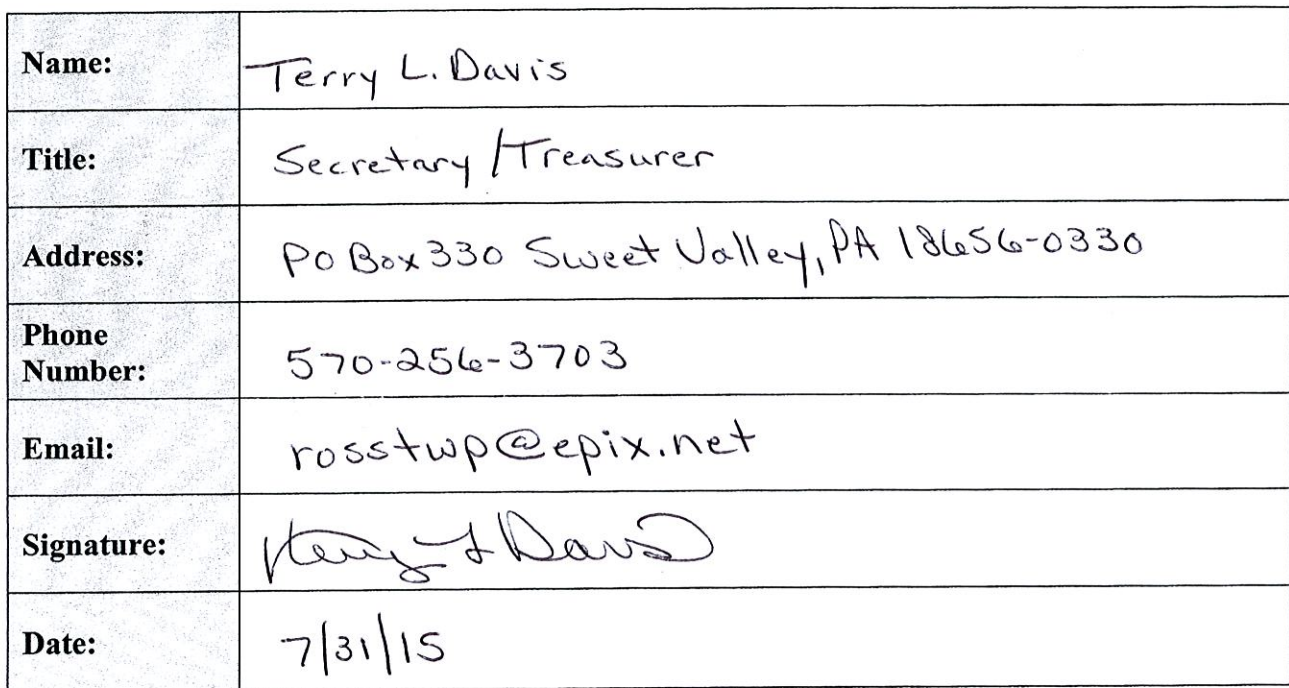 Name: Terry L. Davis
Title: Secretary/Treasurer
Address: PO Box 330 Sweet Valley, PA 18656-0330
Phone
Number: 570-256-3703
Email: rosstwp@epix.net
Signature: Terry L Davis
Date: 7/31/15